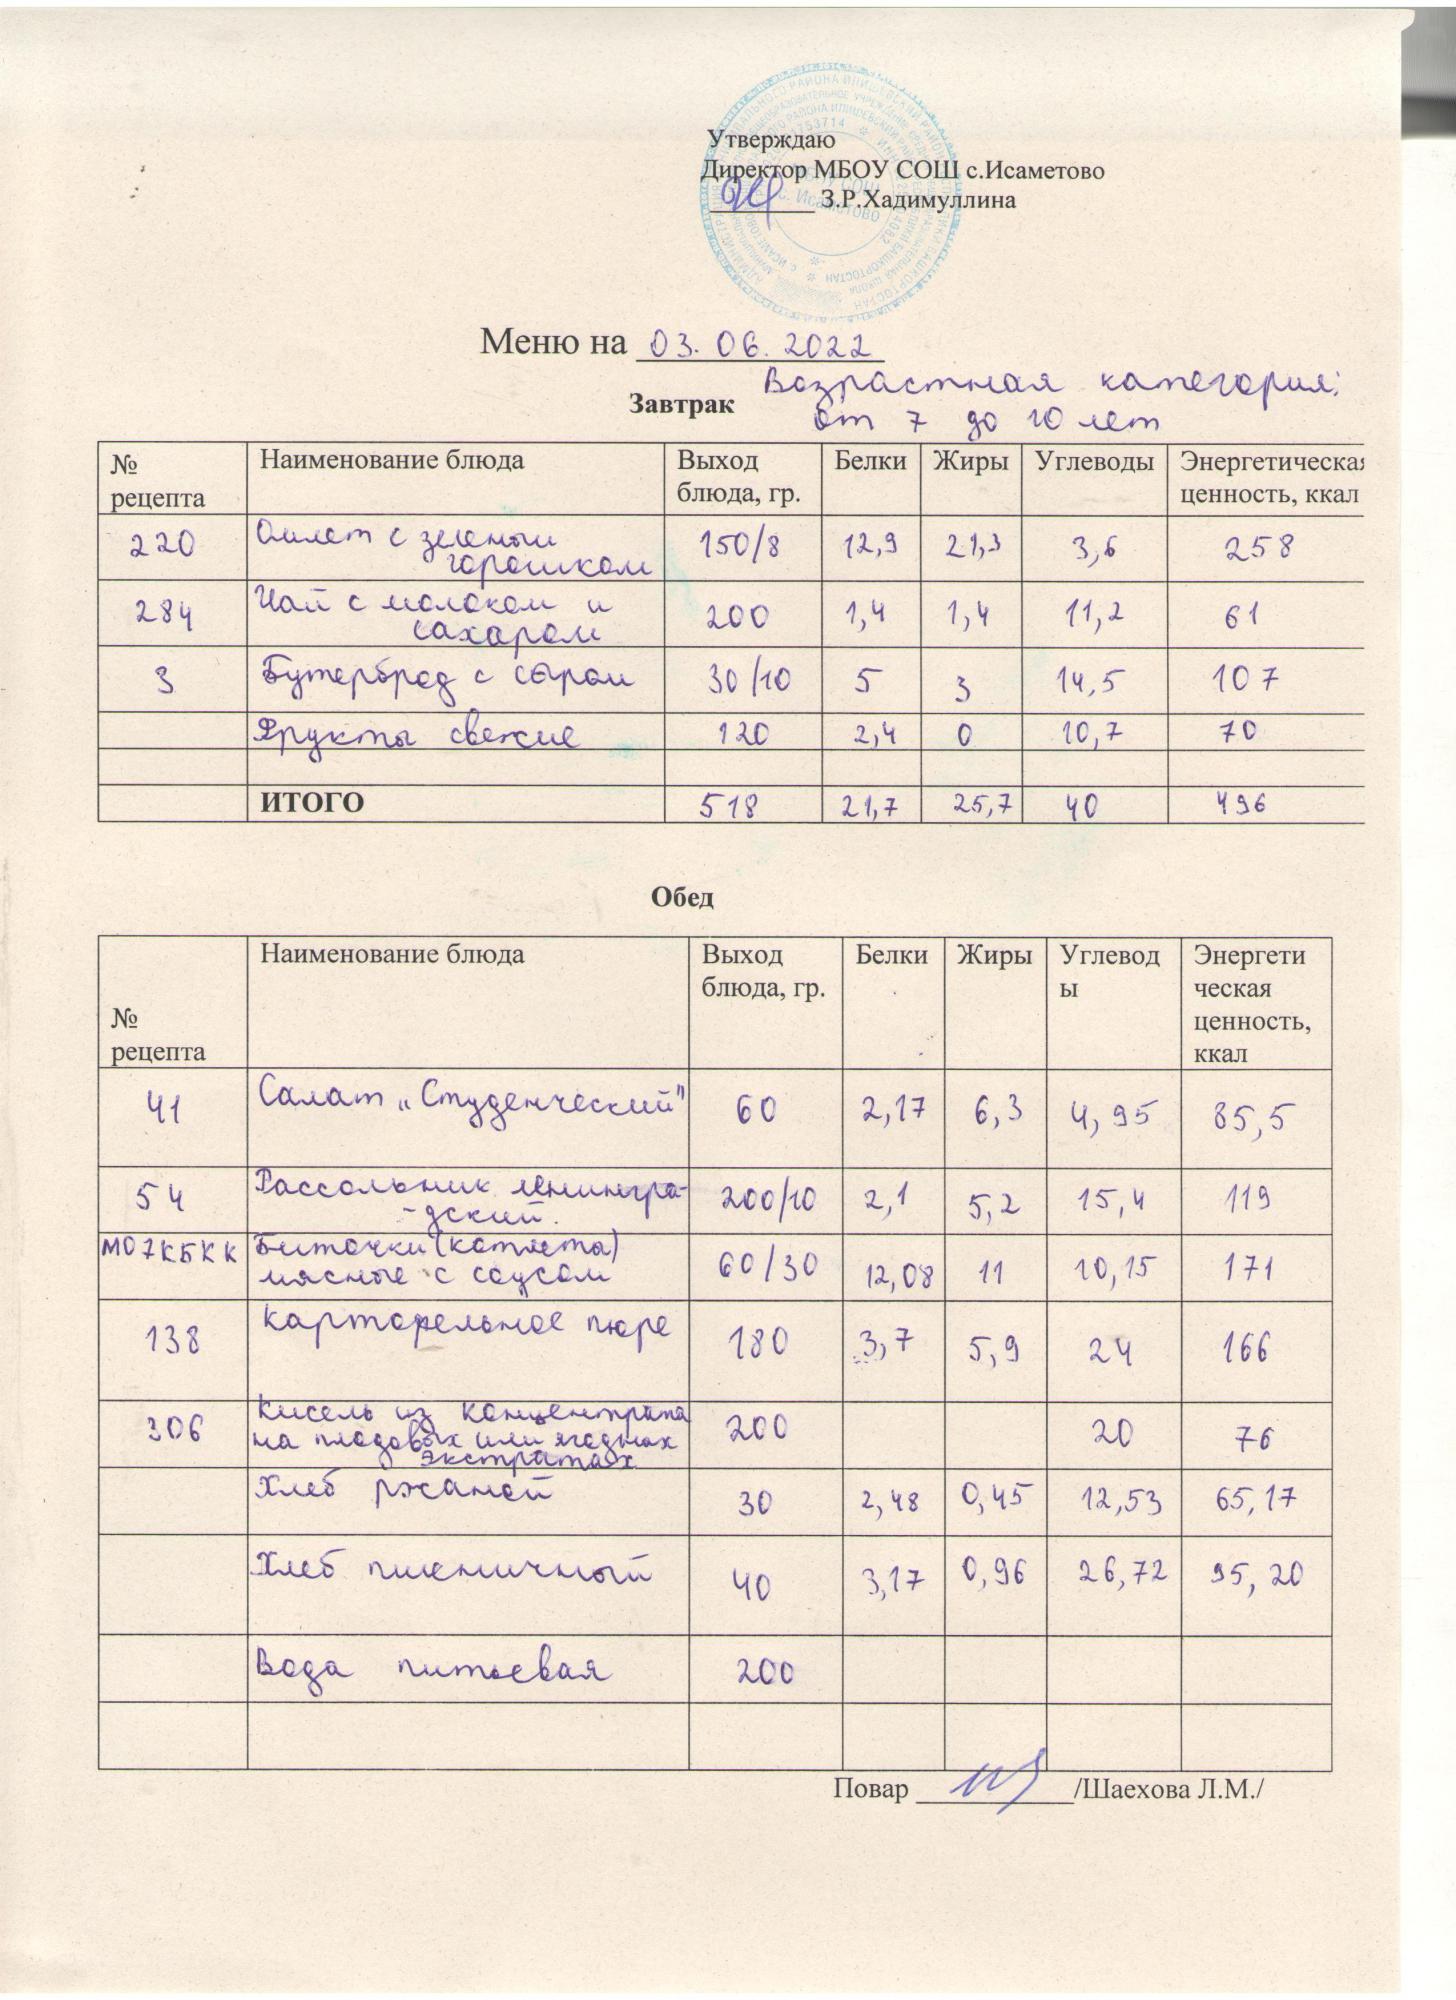 Утверждаю
Директор МБОУ СОШ с.Исаметово
З.Р.Хадимуллина
Меню на 03.06.2022
Возрастная категория:
Завтрак
от 7 до 10 лет
№ рецепта Наименование блюда Выход блюда, гр. Белки Жиры Углеводы Энергетическая ценность, ккал
220 Омлет с зеленым горошком 150/8 12,9 21,3 3,6 258
284 Чай с молоком и сахаром 200 1,4 1,4 11,2 61
3 Бутерброд с сыром 30/10 5 3 14,5 107
Фрукты свежие 120 2,4 0 10,7 70
ИТОГО 518 21,7 25,7 40 496
Обед
№ рецепта Наименование блюда Выход блюда, гр. Белки Жиры Углеводы Энергетическая ценность, ккал
41 Салат „Студенческий" 60 2,17 6,3 4,95 85,5
54 Рассольник ленингра-
-дский. 200/10 2,1 5,2 15,4 119
МО7КБКК Биточки (котлеты)
мясные с соусом 60/30 12,08 11 10,15 171
138 картофельное пюре 180 3,7 5,9 24 166
306 кисель из концентрата
на плодовых или ягодных
экстрактах 200 20 76
Хлеб ржаной 30 2,48 0,45 12,53 65,17
Хлеб пшеничный 40 3,17 0,96 26,72 95,20
Вода питьевая 200
Повар /Шаехова Л.М./